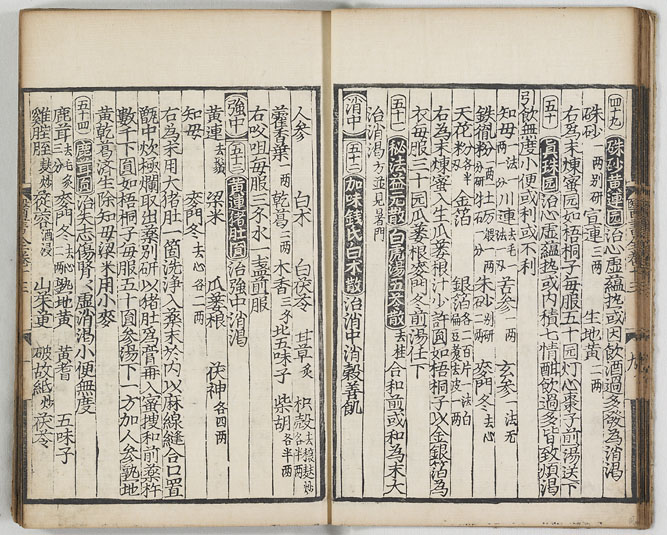 四十九 硃砂黃連园 治心虛蘊热或因飲酒過多發為消渴
硃砂 一两別研 宣連 三两 生地黄 二两
右為末煉蜜园如梧桐子每服五十园灯心棗子前湯送下
五十 玄珠园 治心虛蕴热或内積七情酣飲過多皆致煩渴
引飲無度小便或利或不利
知母 一两 川連 去毛一两 苦參 一两 玄參 一法无
鉄粉 一两分研 牡蛎 一两 朱砂 別研 麥門冬 去心
天花粉 各半两 金箔 銀箔 各二百片
右為末煉蜜入生瓜蔞根汁少許圓如梧桐子以金銀箔為
衣每服三十园瓜蔞根麥門冬前湯任下
五十一 秘法益元散白虎湯五苓散 去桂 合和前或和為末大
治消渴方並見暑門
消中 五十二 加味錢氏白术散 治消中消穀善飢
人参 白术 白茯苓 甘草 炙 枳殼 去穰麸炒各半两
藿香葉 一两 乾葛 二两 木香 三分 北五味子 柴胡 各半两
右㕮咀每服三分水一盞前服
強中 五十三 黃連猪肚圓 治強中消渴
黃連 去鬚 梁米 瓜蔞根 茯神 各四两
知母 麥門冬 去心各二两
右為末用大猪肚一箇洗淨入藥末於内以麻線縫合口置
甑中炊極爛取出藥別研以猪肚為膏再入蜜搜和前藥杵
數千下圓如梧桐子每服五十圓參湯下一方加人参熟地
黄乾葛济生除知母梁米用小麥
五十四 鹿茸圓 治失志傷腎腎虛消渴小便無度
鹿茸 去毛炙三分 麥門冬 去心二两 熟地黄 黃耆 五味子
雞膍胵 麸炒 蓯蓉 酒浸 山茱萸 破故紙 炒 茯苓